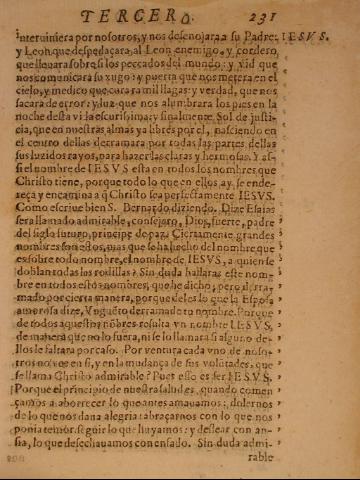 TERCERO. 231
interuiniera por nosotros, y nos desenojara a su Padre: IESVS.
y Leon, que despedaçara, al Leon enemigo, y cordero,
que lleuara sobre si los peccados del mundo: y vid que
nos comunicara su xugo: y puerta que nos metera en el
cielo, y medico que curara mil llagas: y verdad, que nos
sacara de error: y luz que nos alumbrara los pies en la
noche desta vida escurissima: y finalmente Sol de justi-
cia, que en nuestras almas ya libres por el, nasciendo en
el centro dellas derramara por todas las partes dellas
sus luzidos rayos, para hazerlas claras y hermosas. Y as-
si el nombre de IESVS esta en todos los nombres que
Christo tiene, porque todo lo que en ellos ay, se ende-
reça y encamina a q̃ Christo sea perfectamente IESVS.
Como escriue bien S. Bernardo diziendo. Dize Esaias
sera llamado admirable, consejero, Dios, fuerte, padre
del siglo futuro, principe de paz. Ciertamente grandes
nombres son estos, mas que se ha hecho del nombre que
es sobre todo nombre, el nombre de IESVS, a quien se
doblan todas las rodillas? Sin duda hallaras este nom-
bre en todos estos nombres, que he dicho, pero derra-
mado por cierta manera, porque del es lo que la Esposa
amorosa dize, Vnguẽto derramado tu nombre. Porque
de todos aquestos nõbres resulta vn nombre IESVS,
de manera que no lo fuera, ni se lo llamara si alguno de-
llos le faltara por caso. Por ventura cada vno de noso-
tros no vee en si, y en la mudança de sus volũtades, que
se llama Christo admirable? Pues esso es ser IESVS.
Porque el principio de nuestra salud es, quando comen
çamos a aborrecer lo que antes amauamos: dolernos
de lo que nos daua alegria: abraçarnos con lo que nos
ponia temor: seguir lo que huyamos: y dessear con an-
sia, lo que desechauamos con enfado. Sin duda admi-
rable